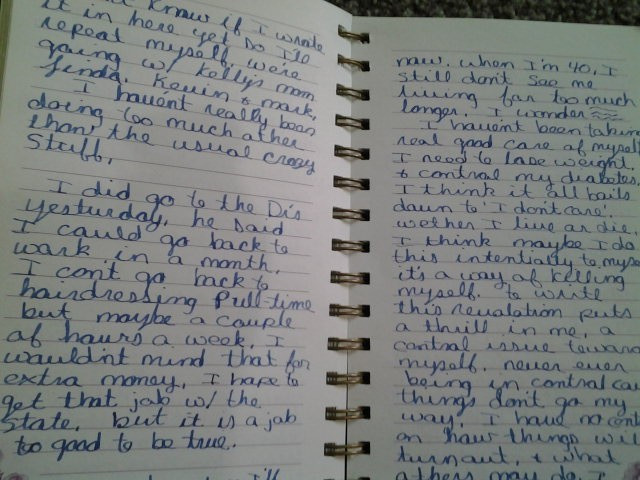 know if I wrote
it in here yet so I'll
repeat myself. we're
going w/ Kelly's mom
Linda, Kevin & mark.
I havent really been
doing too much other
than the usual crazy
stuff.
I did go to the Drs
yesturday. he said
I could go back to
work in a month.
I cont go back to
hairdressing full-time
but maybe a couple
of hours a week. I
would'nt mind that for
extra money. I hope to
get that job w/ the
State. but it is a job
too good to be true.
I'll
now. when I'm 40, I
still don't see me
living far too much
longer. I wonder
I haven't been takin
real good care of myself
I need to lose weight.
& control my diabetes
I think it all boils
down to 'I don't care'.
wether I live or die.
I think maybe I do
this intentially to myse
it's a way of killing
myself. to write
this revalation puts
a thrill in me, a
control issue toward
myself. never ever
being in control caus
things don't go my
way. I have no cont
on how things wil
turn out, & what
others may do. I